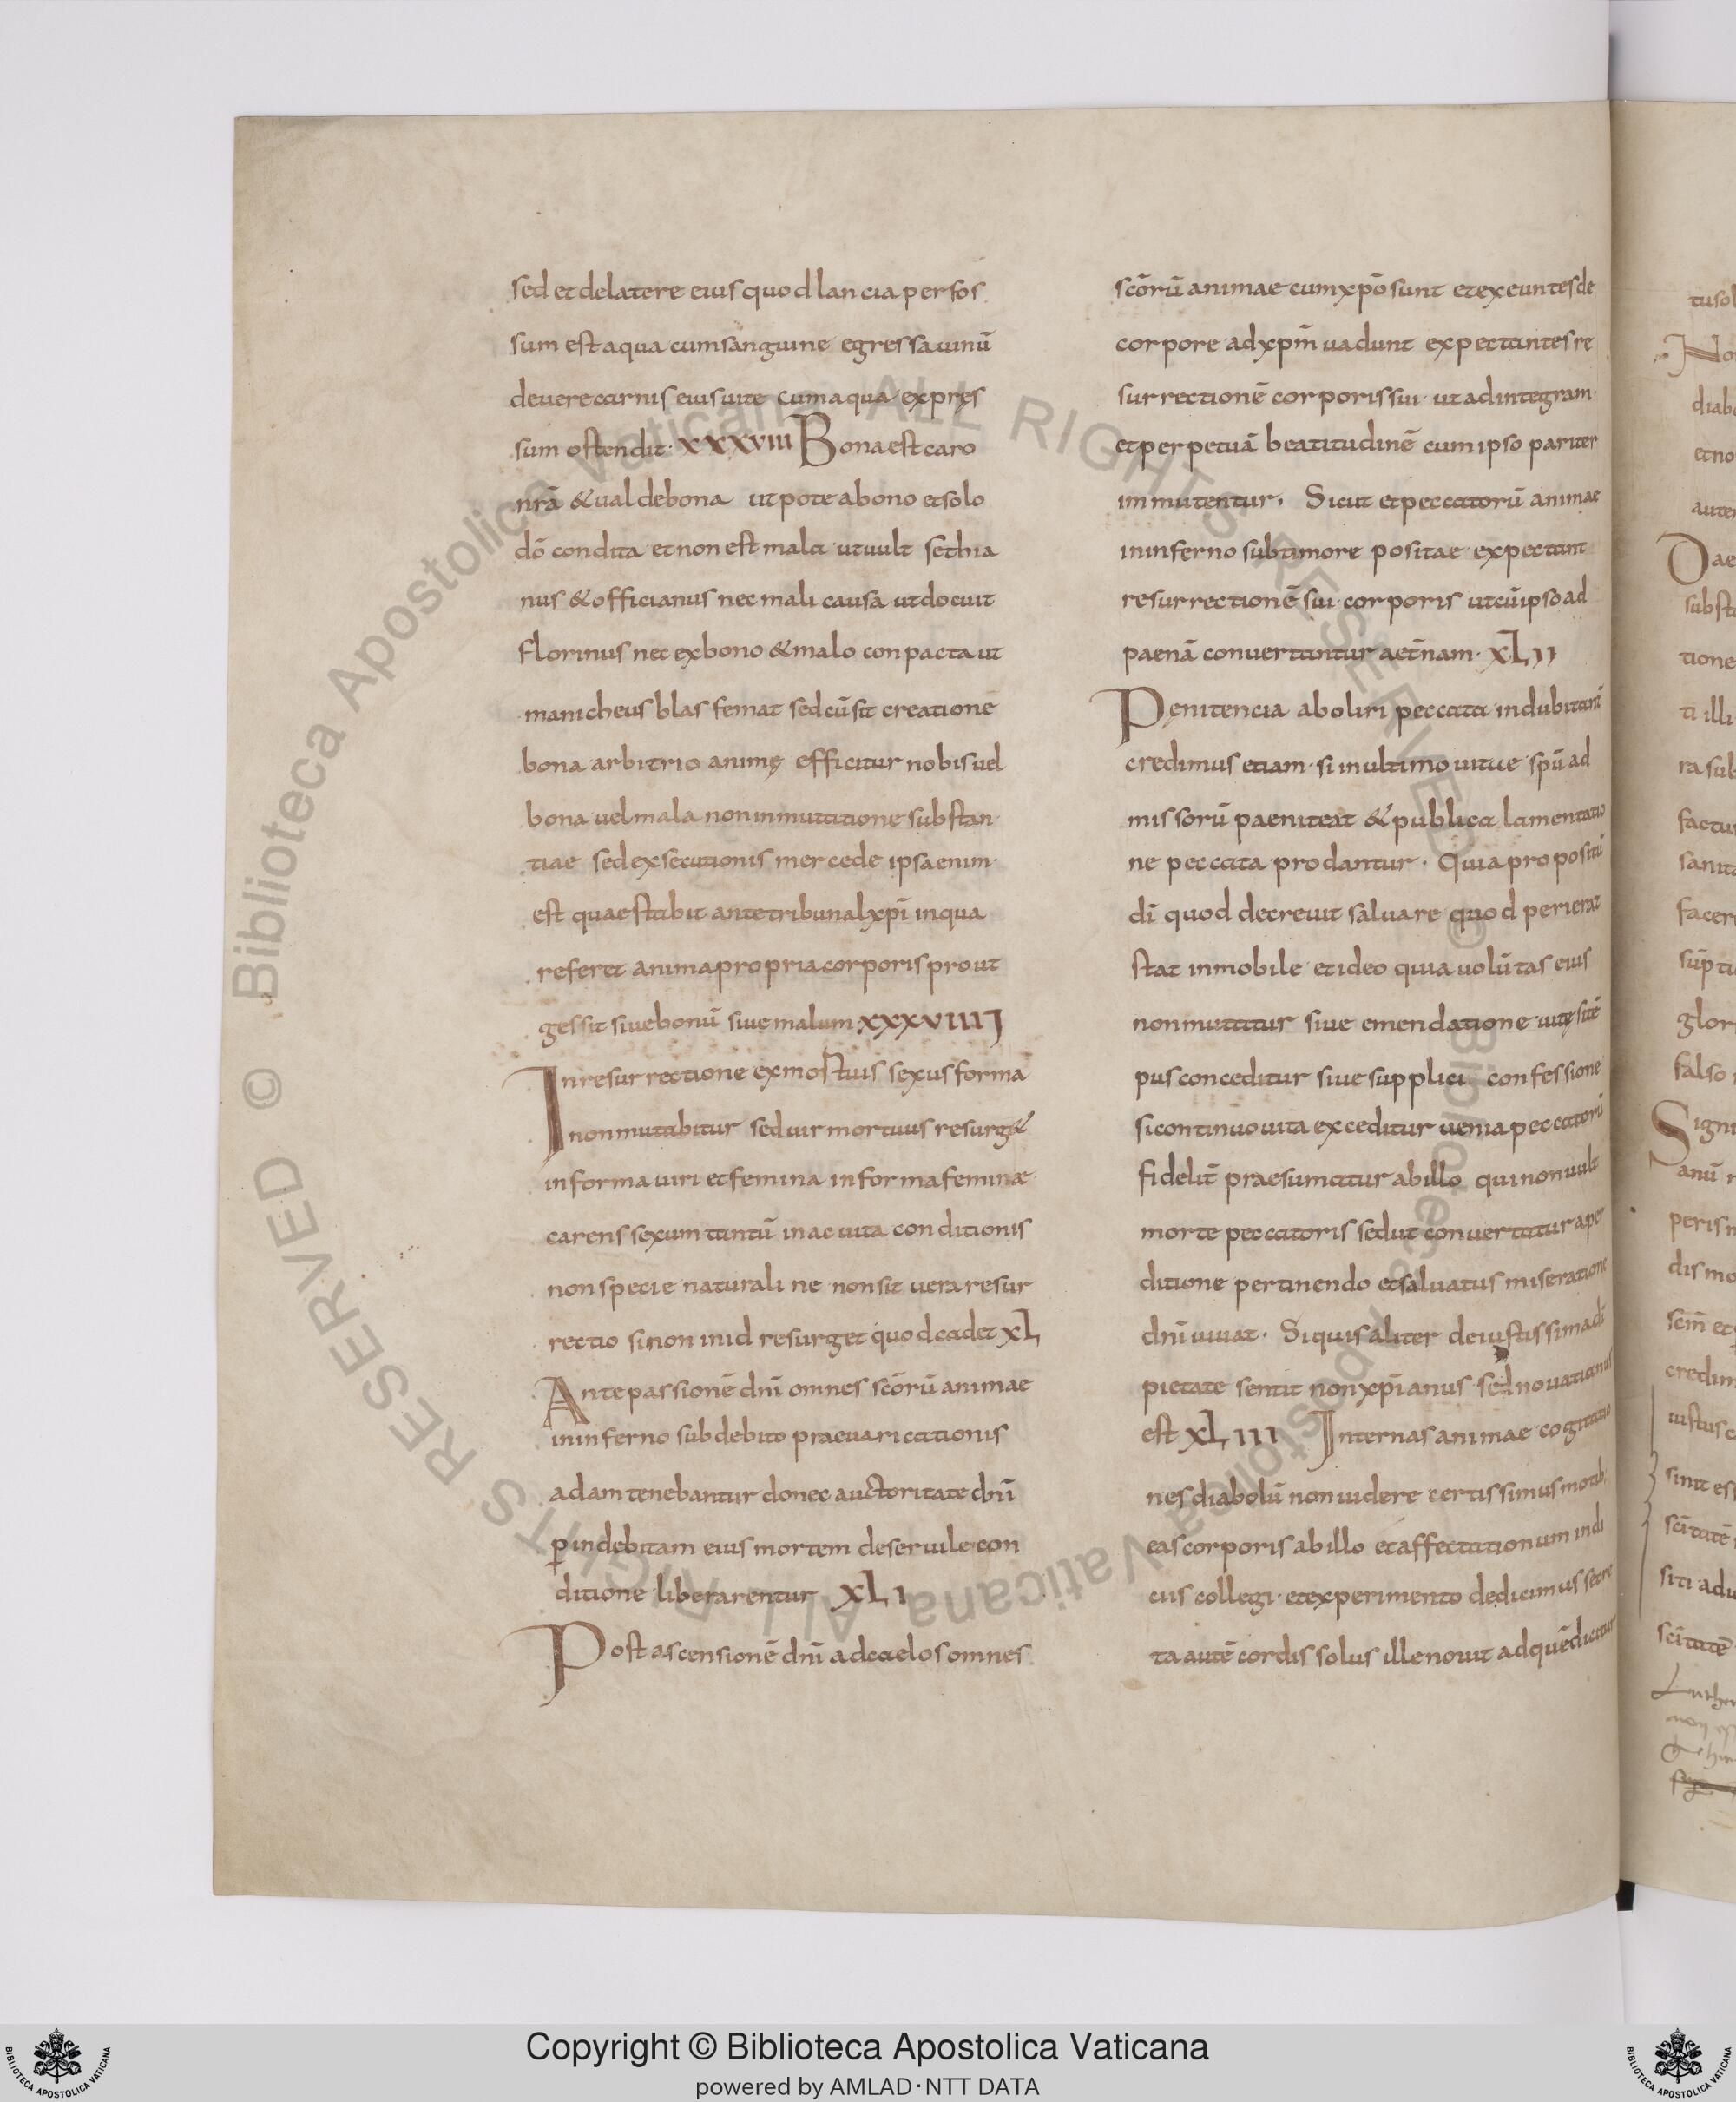 sed et delatere eius quod lancia perfos
sum est aqua cum sanguine egressa uinū
deuere carnis eius uite cum aqua expręs
sum ostendit· XXXVIII Bona est caro
nrā & ual de bona ut pote abono et solo
dō condita et non est mala ut uult sethia
nus & officianus nec mali causa ut docuit
florinus nec ex bono & malo conpacta ut
manicheus blasfemat sed cū sit creatione
bona arbitrio animę efficitur nobis uel
bona uel mala non inmutatione substan
tiae sed exsecutionis mercede ipsa enim·
est quae stabit ante tribunal xpī in qua
referet anima propria corporis prout
gessit siue bonū siue malum XXXVIIII
In resurrectione ex mostuis sexus forma
non mutabitur sed uir mortuus resurg&
in forma uiri et femina in forma feminæ
carens sexum tantū in ac uita conditionis
non specie naturali ne non sit uera resur
rectio si non in id resurget quod cadet XL
Ante passionē dnī omnes scōrū animae
in inferno sub debito praeuaricationis
adam tenebantur donec auctoritate dnī
p̄ indebitam eius mortem de seruile con
ditione liberarentur XLI
Post ascensionē dnī ad caelos omnes
scōrū animae cum xpō sunt et exeuntes de
corpore ad xpm̄ uadunt expectantes re
surrectionē corporis sui· ut ad integram·
et perpetuā beatitudinē cum ipso pariter
immutentur. Sicut et peccatorū animae
in inferno sub timore positae expectant
resurrectionē sui corporis ut cū ipso ad
paenā conuertantur aet̄nam· XLII
Penitencia aboliri peccata indubitant̄
credimus etiam· si in ultimo uitae spū ad
missorū paeniteat & publica lamentatio
ne peccata prodantur· Quia propositū
dī quod decreuit saluare quod perierat
stat inmobile et ideo quia uolūtas eius
non mutatur siue emendatione uitę si tē
pus conceditur siue supplici confessione
si continuo uita exceditur uenia peccatorū
fidelit̄ praesumatur ab illo qui non uult
morte peccatoris sed ut conuertatur a per
ditione pertinendo et saluatus miseratione
dnī uiuat· Si quis aliter de iustissima dī
pietate sentit non xpīanus sed nouatianus
est XLIII Internas animae cogitatio
nes diabolū non uidere certissimus motib·
eas corporis ab illo et affectationum indi
ciis collegi· et experimento dedicimus secre
ta autē cordis solus ille nouit ad quē dicitur
Copyright © Biblioteca Apostolica Vaticana
powered by AMLAD·NTT DATA